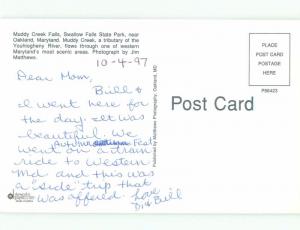 Muddy Creek Falls, Swallow Falls State Park, near
Oakland, Maryland. Muddy Creek, a tributary of the
Youhiogheny River, flows through one of western
Maryland's most scenic areas. Photograph by Jim
Matthews.
10-4-97
Dear Mom,
Bill &
I went here for
the day. It was
beautiful. We
Autumn Fest
went on a train
ride to Western
Md and this was
a "side" trip that
was offered. Love
Di & Bill
Post Card
PLACE
POST CARD
POSTAGE
HERE
P86423
Published by Matthews Photography, Oakland, MD